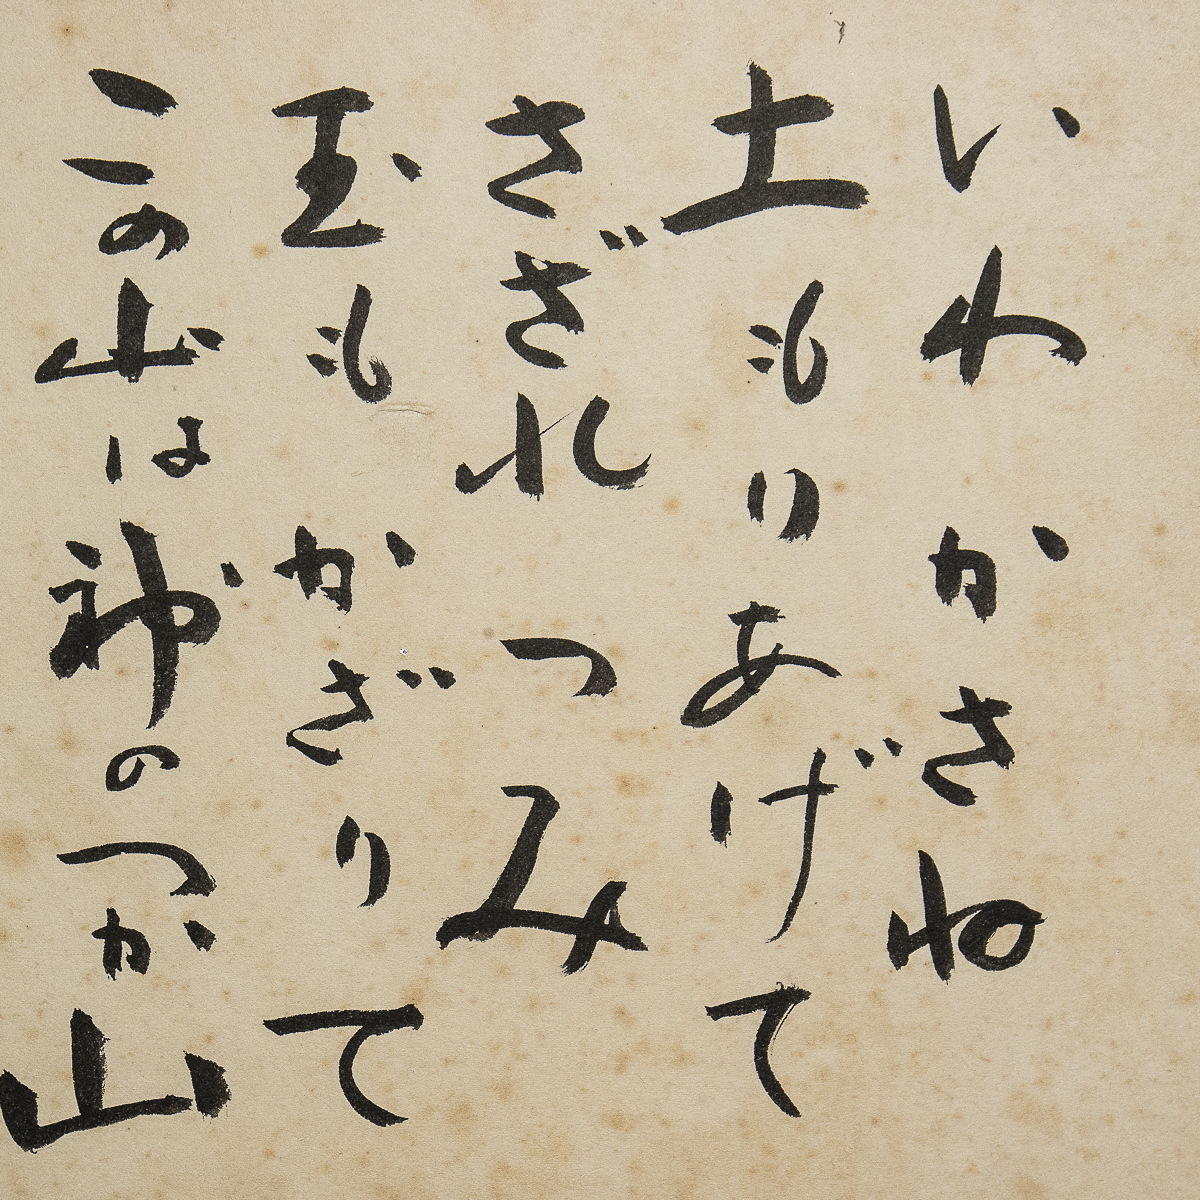 いわ かさね
土もりあげて
さざれ つみ
玉も かざりて
この山は神のつか山